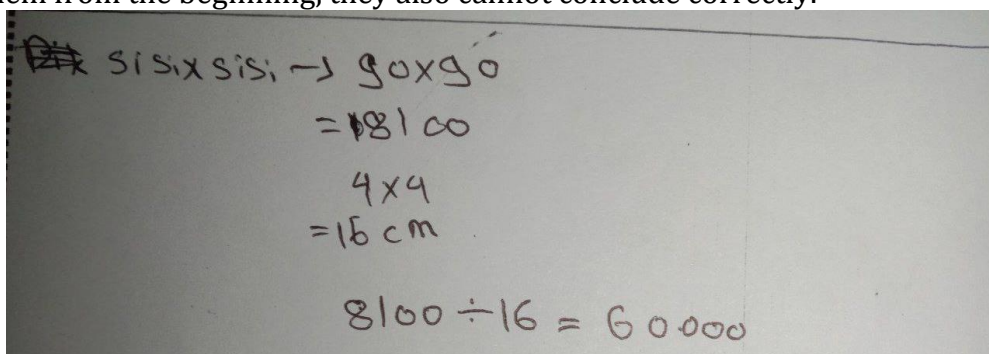 them from the beginning, they also cannot conclude correctly.
sisi x sisi → 90x90
= 8100
4x4
= 16 cm
8100 ÷ 16 = 60.000